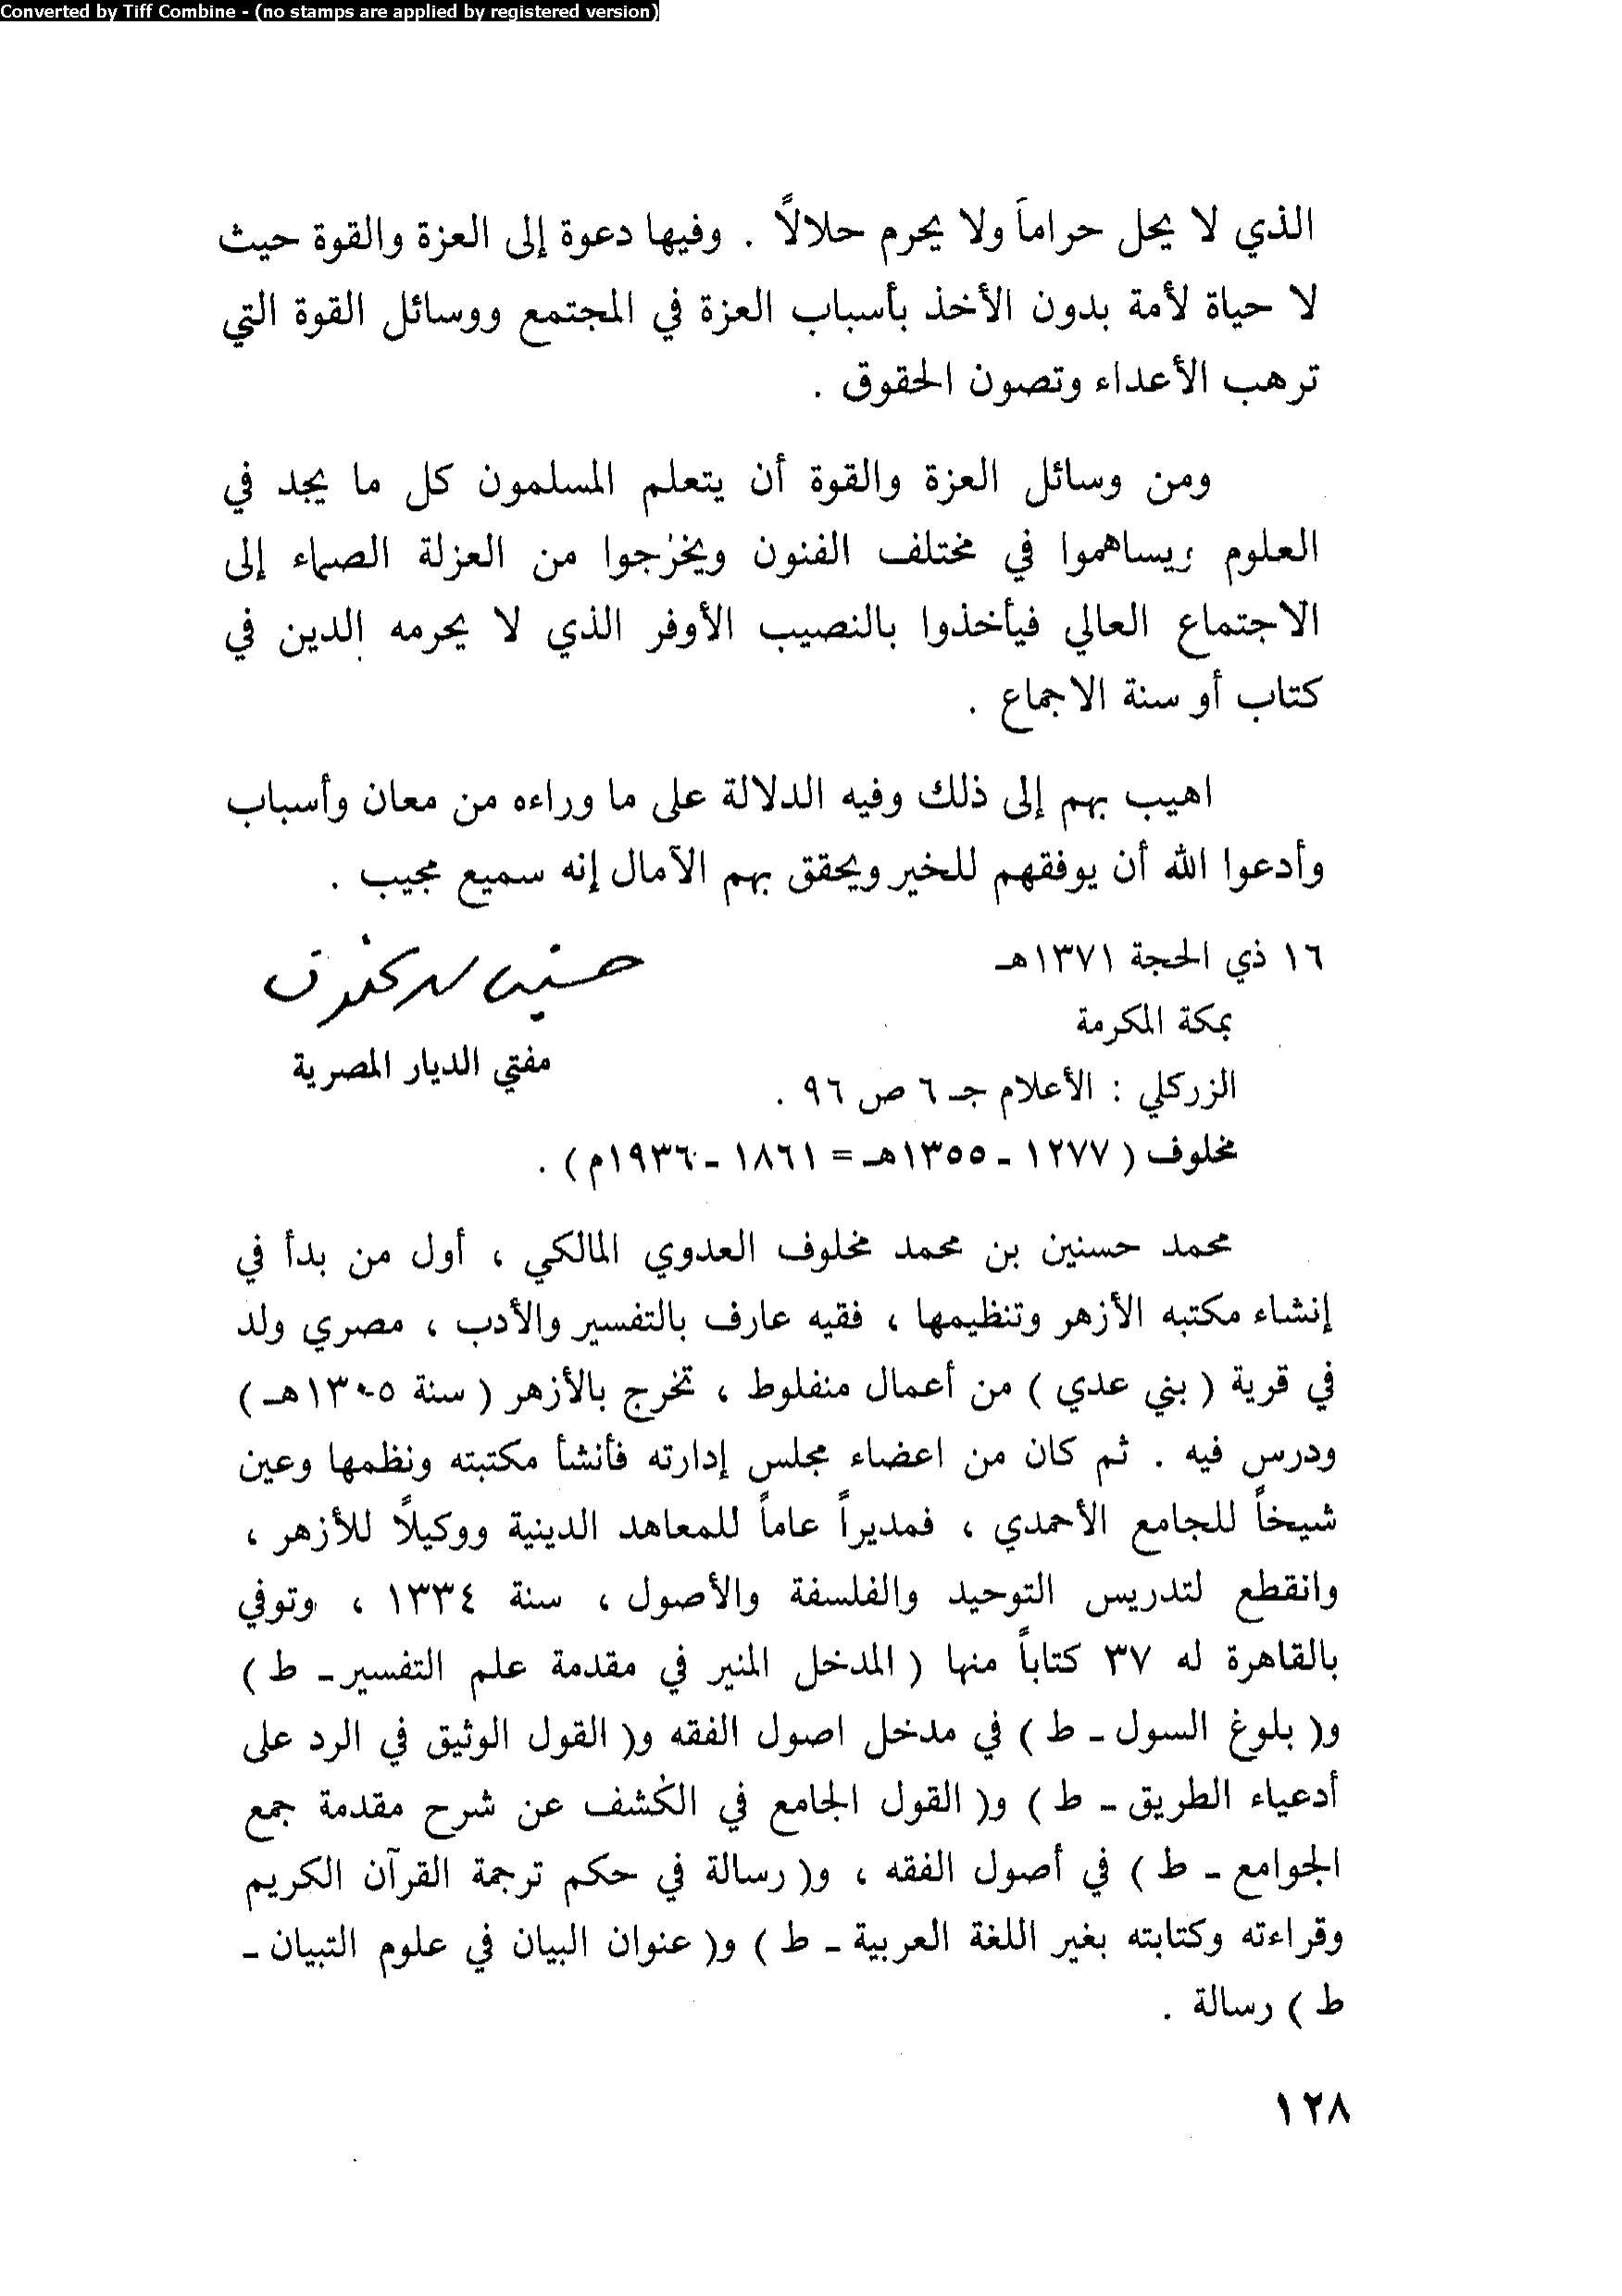 Converted by Tiff Combine - (no stamps are applied by registered version)
الذي لا يحل حراماً ولا يحرم حلالاً . وفيها دعوة إلى العزة والقوة حيث
لا حياة لأمة بدون الأخذ بأسباب العزة في المجتمع ووسائل القوة التي
ترهب الأعداء وتصون الحقوق .
ومن وسائل العزة والقوة أن يتعلم المسلمون كل ما يجد في
العلوم ويساهموا في مختلف الفنون ويخرجوا من العزلة الصماء إلى
الاجتماع العالي فيأخذوا بالنصيب الأوفر الذي لا يحرمه الدين في
كتاب أو سنة الاجماع .
اهيب بهم إلى ذلك وفيه الدلالة على ما وراءه من معان وأسباب
وأدعوا الله أن يوفقهم للخير ويحقق بهم الآمال إنه سميع مجيب .
١٦ ذي الحجة ١٣٧١هـ
بمكة المكرمة
مفتي الديار المصرية
الزركلي : الأعلام جـ ٦ ص ٩٦ .
مخلوف ( ١٢٧٧ - ١٣٥٥هـ = ١٨٦١ - ١٩٣٦م ) .
محمد حسنين بن محمد مخلوف العدوي المالكي ، أول من بدأ في
إنشاء مكتبه الأزهر وتنظيمها ، فقيه عارف بالتفسير والأدب ، مصري ولد
في قرية ( بني عدي ) من أعمال منفلوط ، تخرج بالأزهر ( سنة ١٣٠٥هـ )
ودرس فيه . ثم كان من اعضاء مجلس إدارته فأنشأ مكتبته ونظمها وعين
شيخاً للجامع الأحمدي ، فمديراً عاماً للمعاهد الدينية ووكيلاً للأزهر ،
وانقطع لتدريس التوحيد والفلسفة والأصول ، سنة ١٣٣٤ ، وتوفي
بالقاهرة له ٣٧ كتاباً منها ( المدخل المنير في مقدمة علم التفسير - ط )
و( بلوغ السول - ط ) في مدخل اصول الفقه و( القول الوثيق في الرد على
أدعياء الطريق - ط ) و( القول الجامع في الكشف عن شرح مقدمة جمع
الجوامع - ط ) في أصول الفقه ، و( رسالة في حكم ترجمة القرآن الكريم
وقراءته وكتابته بغير اللغة العربية - ط ) و( عنوان البيان في علوم التبيان -
ط ) رسالة .
١٢٨